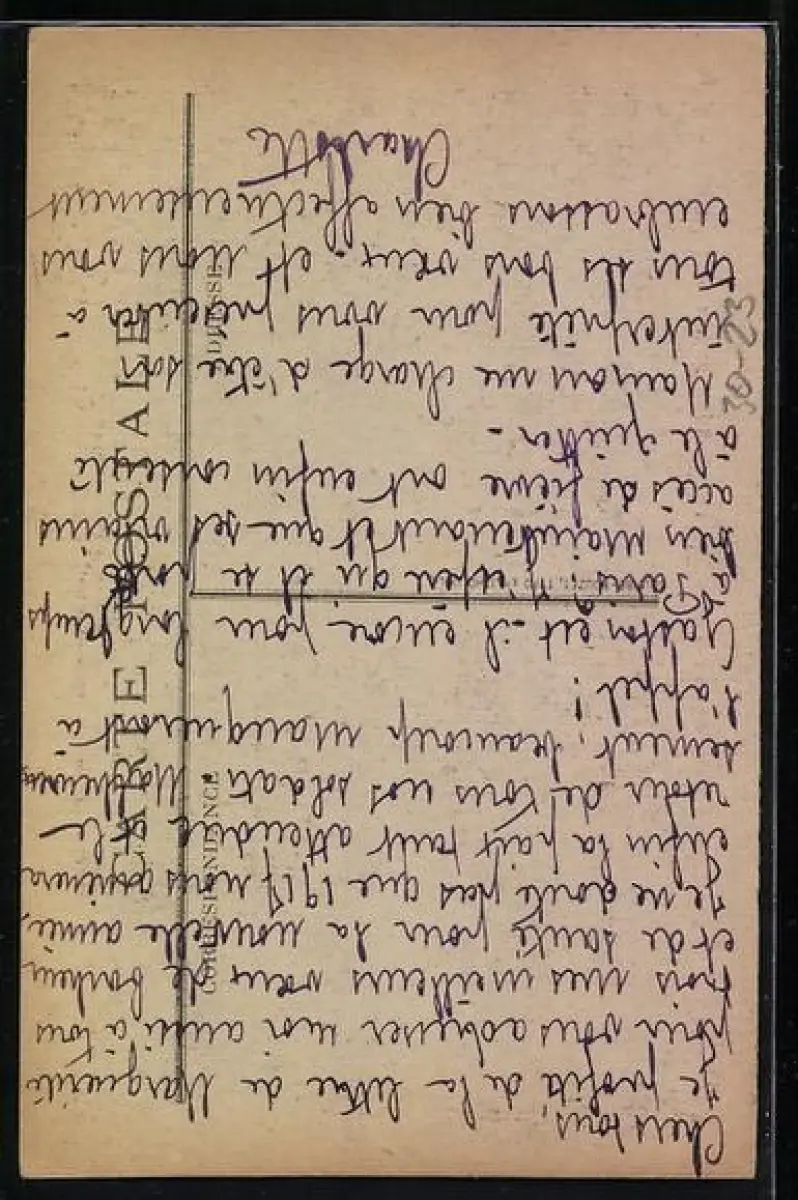 Chers tous,
Je profite de la lettre de Marguerite
pour vous adresser moi aussi à tous
trois mes meilleurs vœux de bonheur
et de santé pour la nouvelle année,
Je ne doute pas que 1917 nous amènera
enfin la paix tant attendue et le
retour de tous nos soldats. Malheureu
sement, beaucoup manqueront à
l'appel!
Gaston est-il encore pour longtemps
à Paris, j'espère qu'il se porte
bien maintenant et que ses vilains
accès de fièvre ont enfin consenti
à le quitter -
Maman me charge d'être son
interprète pour vous présenter à
tous ses bons vœux - et nous vous
embrassons bien affectueusement
Charlotte
CARTE POSTALE
CORRESPONDENCE
ADRESSE
30-23